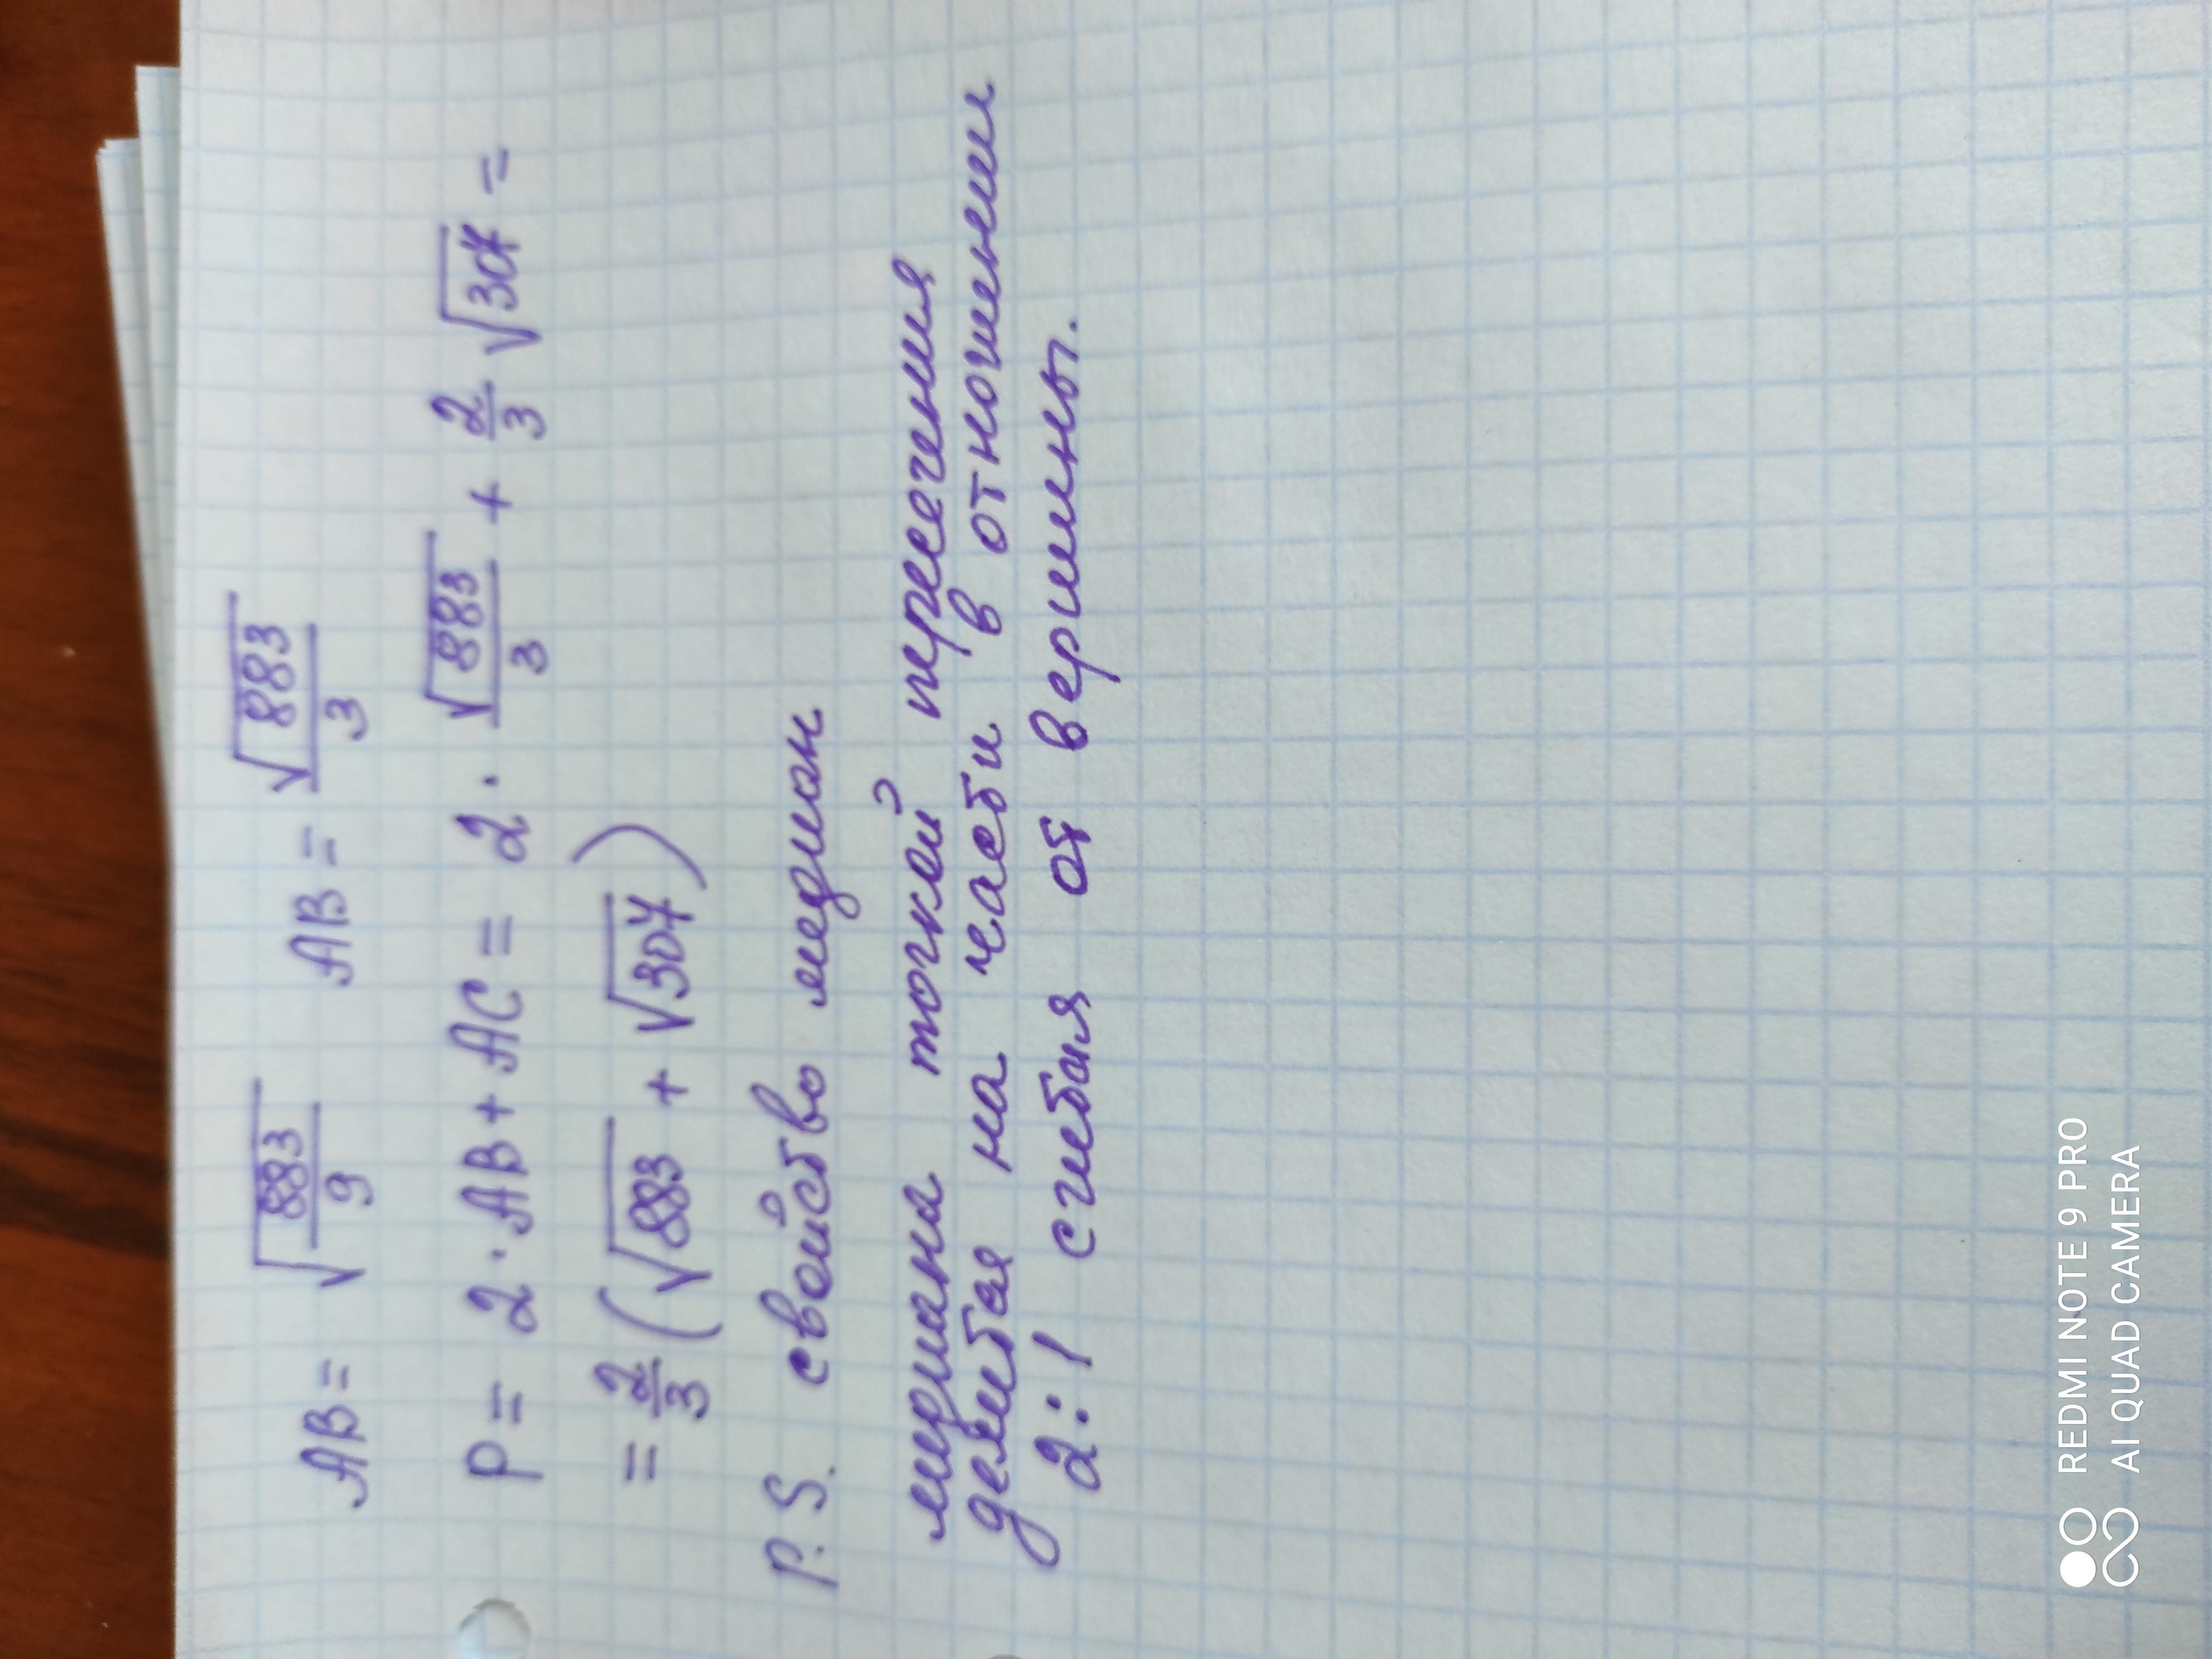 AB = √(883/9) AB = √883/3
P = 2 · AB + AC = 2 · √883/3 + 2/3 √307 =
= 2/3 (√883 + √307)
P.S. свойство медиан
медиана точкой пересечения
делится на части в отношении
2:1 считая от вершины.
REDMI NOTE 9 PRO
AI QUAD CAMERA